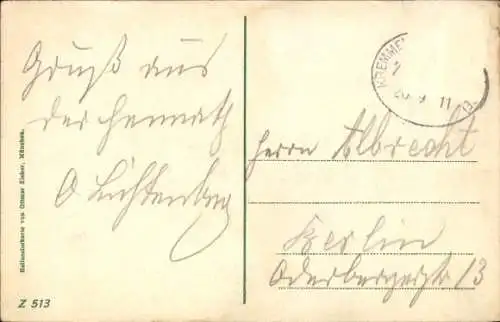 Gruß aus
der Heimath
O Lichtenberg
Herrn Albrecht
Berlin
Oderbergerstr 13
KREMME
11
Hollanderkarte von Ottmar Zieher, München.
Z 513